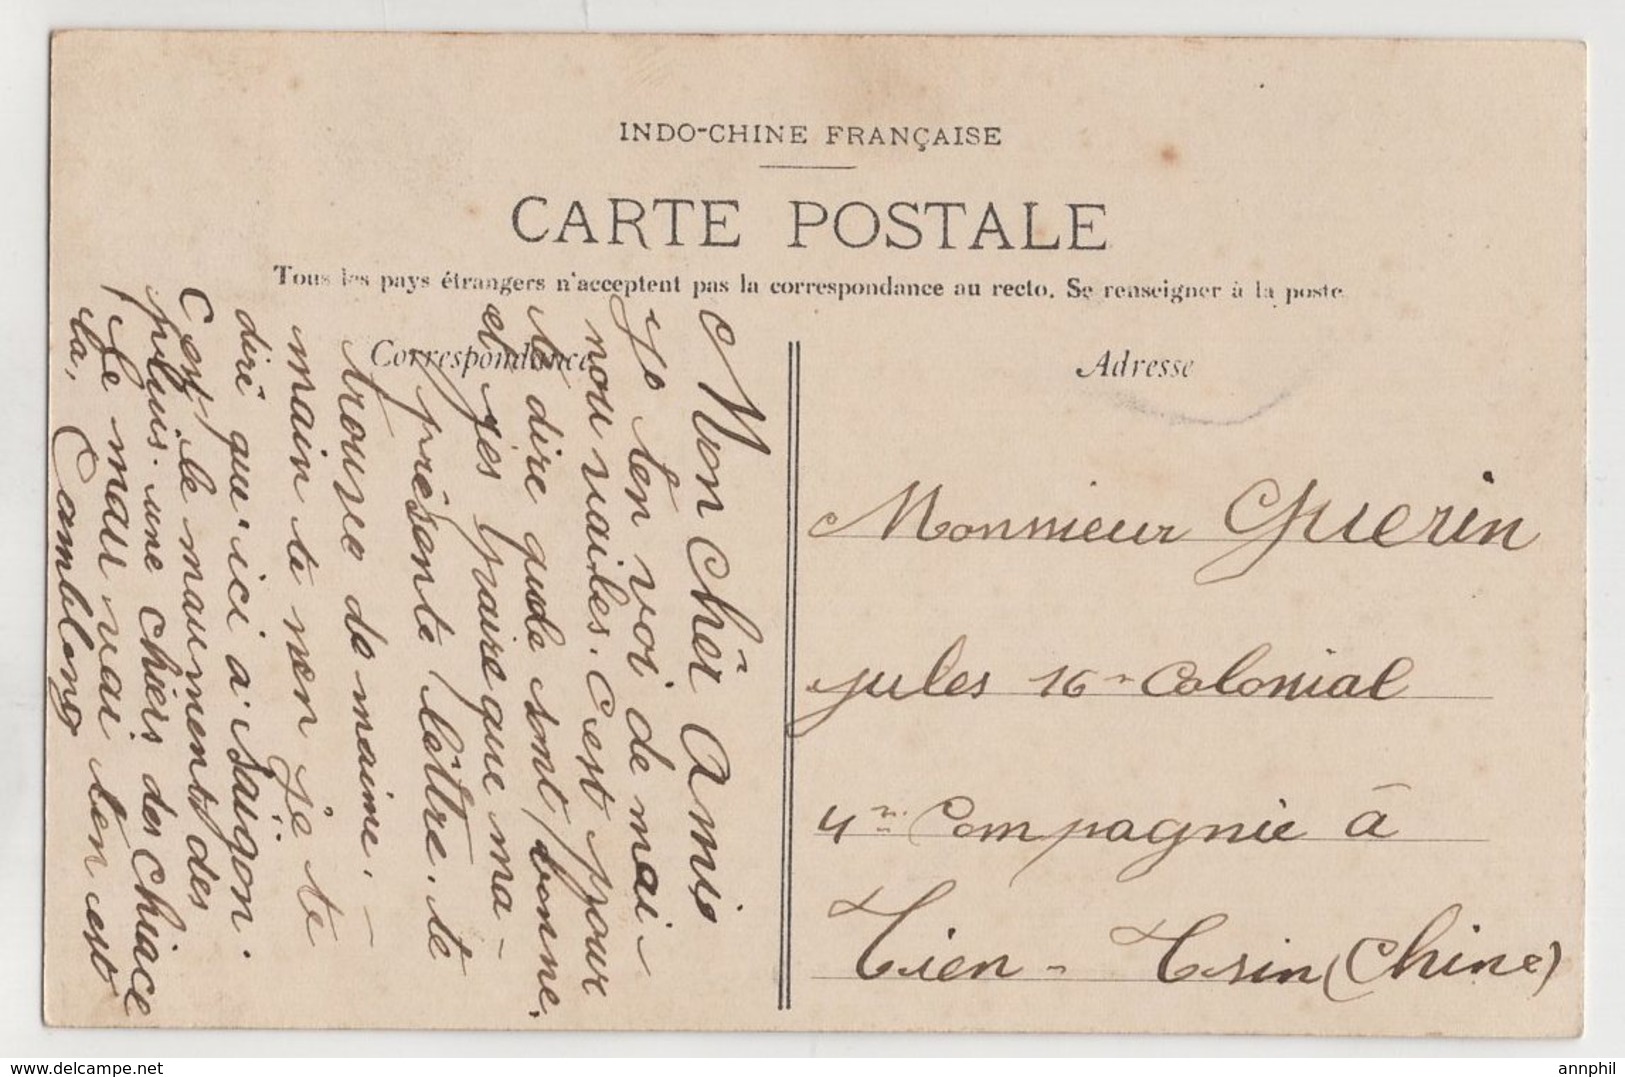 INDO-CHINE FRANÇAISE
CARTE POSTALE
Tous les pays étrangers n'acceptent pas la correspondance au recto. Se renseigner à la poste
Correspondance
Mon cher Amis
Je ten voi de mai-
nou vailes. C'est pour
te dire qude sont bonne,
et jes spaire que ma-
présente laîttre. te
trouve de maime. -
main te nen je te
diré qu'ici a Saïgon.
C'est le maument des
pluis. une chiers des Chiace
Le mau vai ten est
la,
Camblong
Adresse
Monsieur Guerin
jules 16e Colonial
4me Compagnie à
Tien-Tsin (Chine)
www.delcampe.net
annphil